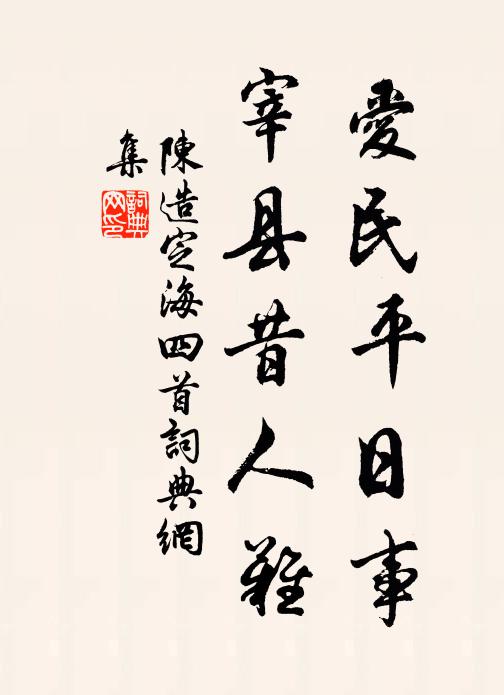 愛民平日事
宰县昔人難
陳造定海四首詞典網
集
詞典
网印